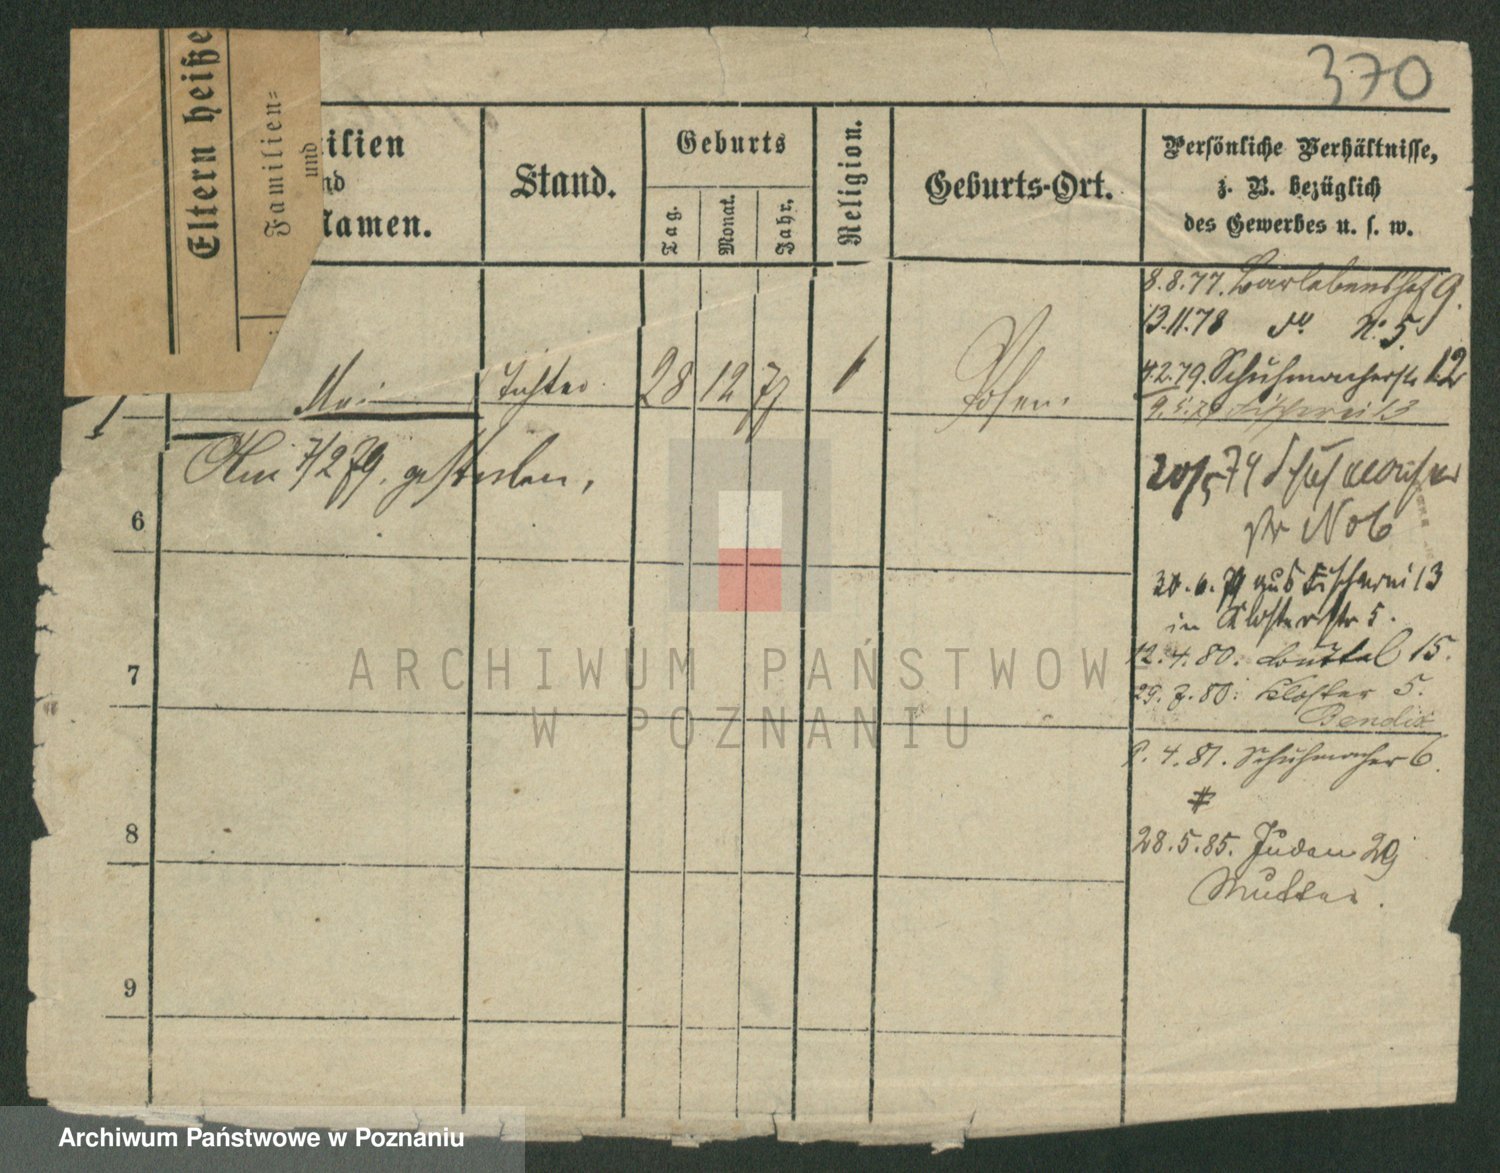 370
Eltern heiße
Familien=
und
ilien
nd
Namen.
Stand.
Geburts
Tag.
Monat.
Jahr.
Religion.
Geburts-Ort.
Persönliche Verhältnisse,
z. B. bezüglich
des Gewerbes u. s. w.
8.8.77. 9.
13.11.78 do No 5.
4.2.79. Schuhmacherstr 12
Tochter 28 12 77 Posen.
Fischerei 13
Am 7/2 79. gestorben,
20/5 79 Schuhmacher
str No 6
6
30.6.79 aus Fischerei 13
in Klosterstr 5.
12.4.80. Büttel 15.
7
29. 7. 80: Kloster 5.
Bendix
9. 4. 81. Schuhmacher 6.
#
8
28.5.85. Juden 29
Mutter.
9
ARCHIWUM PAŃSTWOW
W POZNANIU
Archiwum Państwowe w Poznaniu